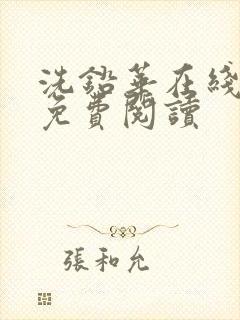 洗鉛華在綫
免費閱讀
張和允